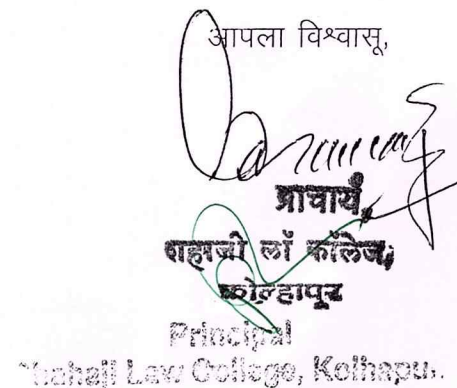 आपला विश्वासू,
प्राचार्य,
शहाजी लॉ कॉलेज,
कोल्हापूर
Principal
Shahaji Law College, Kolhapur.